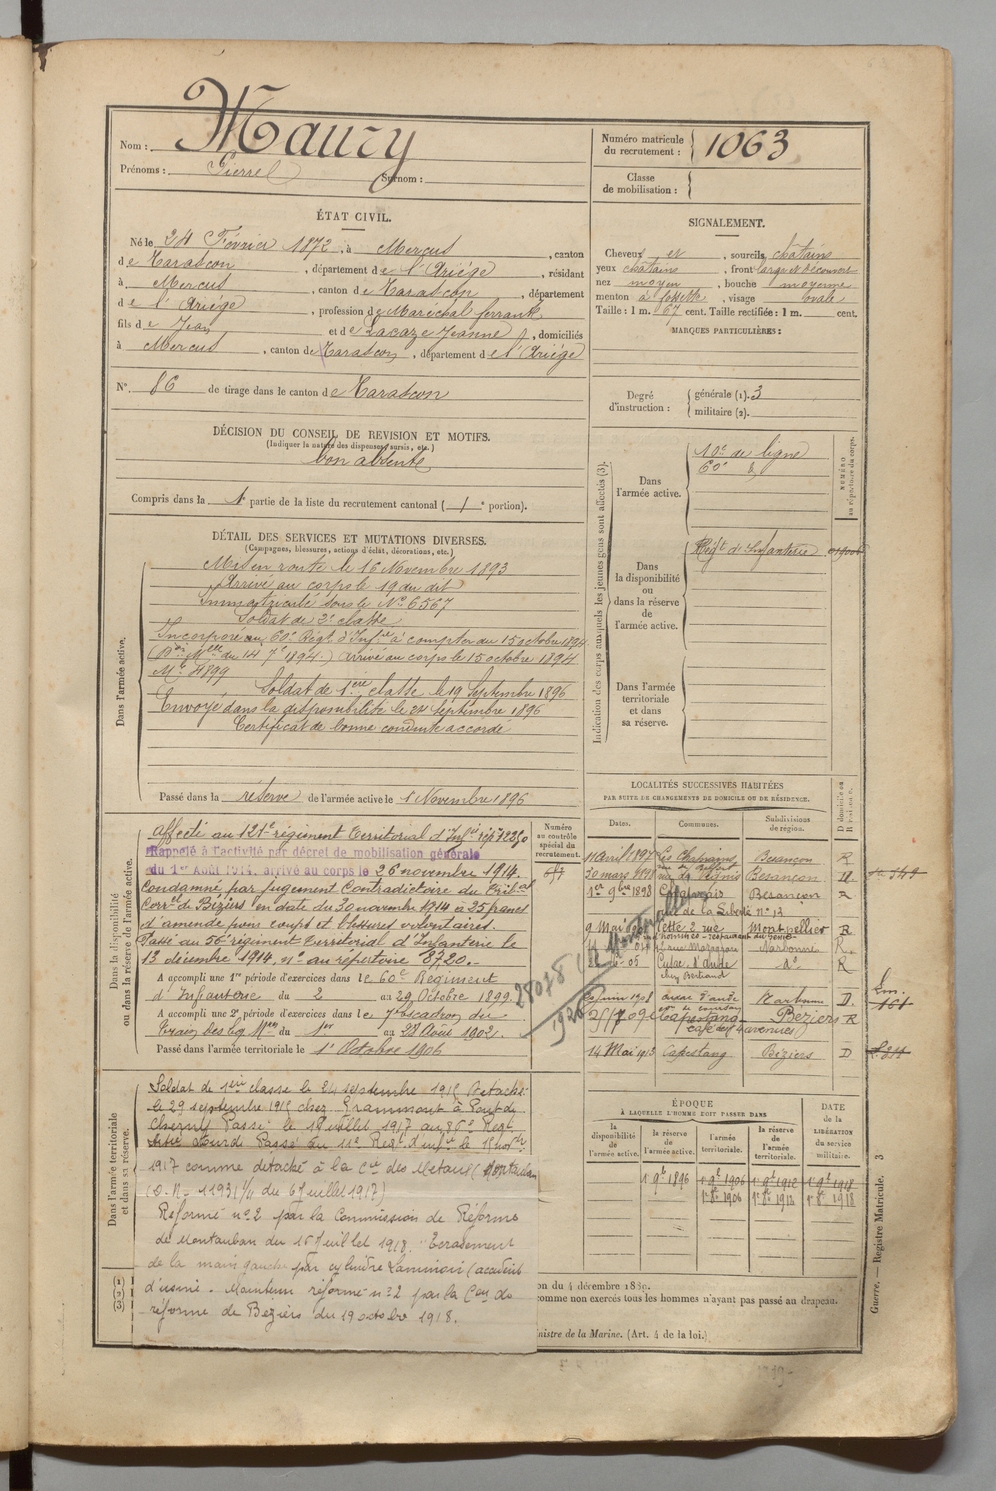 Nom : Maury
Prénoms : Pierre Surnom :
Numéro matricule du recrutement : 1063
Classe de mobilisation :
ÉTAT CIVIL.
Né le 24 Février 1872, à Mercus, canton
de Tarascon, département de l'Ariége, résidant
à Mercus, canton de Tarascon, département
de l'Ariége, profession de Maréchal ferrant
fils de Jean et de Lacaze Jeanne, domiciliés
à Mercus, canton de Tarascon, département de l'Ariége
N° 86 de tirage dans le canton de Tarascon
DÉCISION DU CONSEIL DE REVISION ET MOTIFS.
(Indiquer la nature des dispenses, sursis, etc.)
bon absent
Compris dans la 1e partie de la liste du recrutement cantonal (1e portion).
SIGNALEMENT.
Cheveux et, sourcils chatains
yeux chatains, front large et découvert
nez moyen, bouche moyenne
menton à fossette, visage ovale
Taille : 1 m. 67 cent. Taille rectifiée : 1 m. cent.
MARQUES PARTICULIÈRES :
Degré d'instruction : générale (1). 3
militaire (2).
DÉTAIL DES SERVICES ET MUTATIONS DIVERSES.
(Campagnes, blessures, actions d'éclat, décorations, etc.)
Dans l'armée active.
Mis en route le 16 Novembre 1893
Arrivé au corps le 19 du dit
Immatriculé sous le N° 6567
Soldat de 2e classe
Incorporé au 60e Régt. d'Infie à compter du 15 octobre 1894
(Don Mlle du 14 7e 1894) arrivé au corps le 15 octobre 1894
Mle 4899
Soldat de 1ère classe le 19 Septembre 1896
Envoyé dans la disponibilité le 24 Septembre 1896
Certificat de bonne conduite accordé
Passé dans la réserve de l'armée active le 1 Novembre 1896
Indication des corps auxquels les jeunes gens sont affectés (3).
NUMÉRO au répertoire du corps.
Dans l'armée active.
10e de ligne
60e
Dans la disponibilité ou dans la réserve de l'armée active.
Régt d'Infanterie
Dans l'armée territoriale et dans sa réserve.
Dans la disponibilité ou dans la réserve de l'armée active.
Affecté au 121e régiment Territorial d'Infie
Rappelé à l'activité par décret de mobilisation générale
du 1er Août 1914. arrivé au corps le 26 novembre 1914.
Condamné par jugement Contradictoire du Tribal
Correl de Béziers en date du 30 novembre 1914 à 25 francs
d'amende pour coups et blessures volontaires.
Passé au 56e régiment Territorial d'Infanterie le
13 décembre 1914, no au répertoire 8720.
A accompli une 1re période d'exercices dans le 60e Régiment
d'Infanterie du 2 au 29 Octobre 1899.
A accompli une 2e période d'exercices dans le 7e escadron du
Train des Eq. Mres du 1er au 28 Août 1902.
Passé dans l'armée territoriale le 1er Octobre 1906
Numéro au contrôle spécial du recrutement.
28078
1926
Montpellier
LOCALITÉS SUCCESSIVES HABITÉES
PAR SUITE DE CHANGEMENTS DE DOMICILE OU DE RÉSIDENCE.
Dates. Communes. Subdivisions de région. D domicile ou R résidence.
11 Avril 1897 Les Chaprais Besançon R
30 mars 1898 Besançon D
1er 9bre 1898 Chaprais Besançon R
rue de la Liberté n° 13
9 Mai Cette 2 rue Montpellier R
Narbonne R
05 Cuxac d'Aude do R
chez Bertrand
juin 1908 Cuxac d'Aude Narbonne D
Capestang Béziers R
café des 4 avenues)
14 Mai 1913 Capestang Béziers D
Dans l'armée territoriale et dans sa réserve.
Soldat de 1ère classe le 21 septembre 1915 Détaché
le 29 septembre 1915 chez Grammont à Pont de
Cheruy Passé le 1er Juillet 1917 au 86e Regt
Passé au 11e Regt d'infie le 1er novbre
1917 comme détaché à la Cie des Métaux (Montauban
(O. N. 11931 1/11 du 6 Juillet 1917)
Réformé n°2 par la Commission de Réforme
de Montauban du 15 Juillet 1918. Ecrasement
de la main gauche par cylindre laminoir (accident
d'usine. Maintenu réformé n°2 par la Con de
réforme de Beziers du 19 octobre 1918.
ÉPOQUE
À LAQUELLE L'HOMME DOIT PASSER DANS
la disponibilité de l'armée active. la réserve de l'armée active. l'armée territoriale. la réserve de l'armée territoriale. DATE de la LIBÉRATION du service militaire.
1er 9e 1896 1er 9e 1906 1er 9e 1912 1er 9e 1918
1er 8e 1906 1er 8e 1912 1er 8e 1918
on du 4 décembre 1889.
comme non exercés tous les hommes n'ayant pas passé au drapeau.
inistre de la Marine. (Art. 4 de la loi.)
Guerre. — Registre Matricule. 3